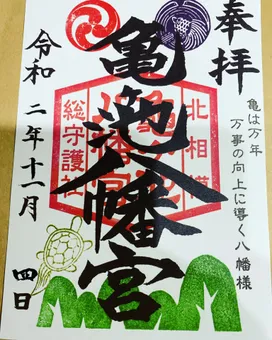 奉拝
亀は万年
万事の向上に導く八幡様
北相模
総守護社
亀ヶ池八幡宮
令和二年十一月
四日